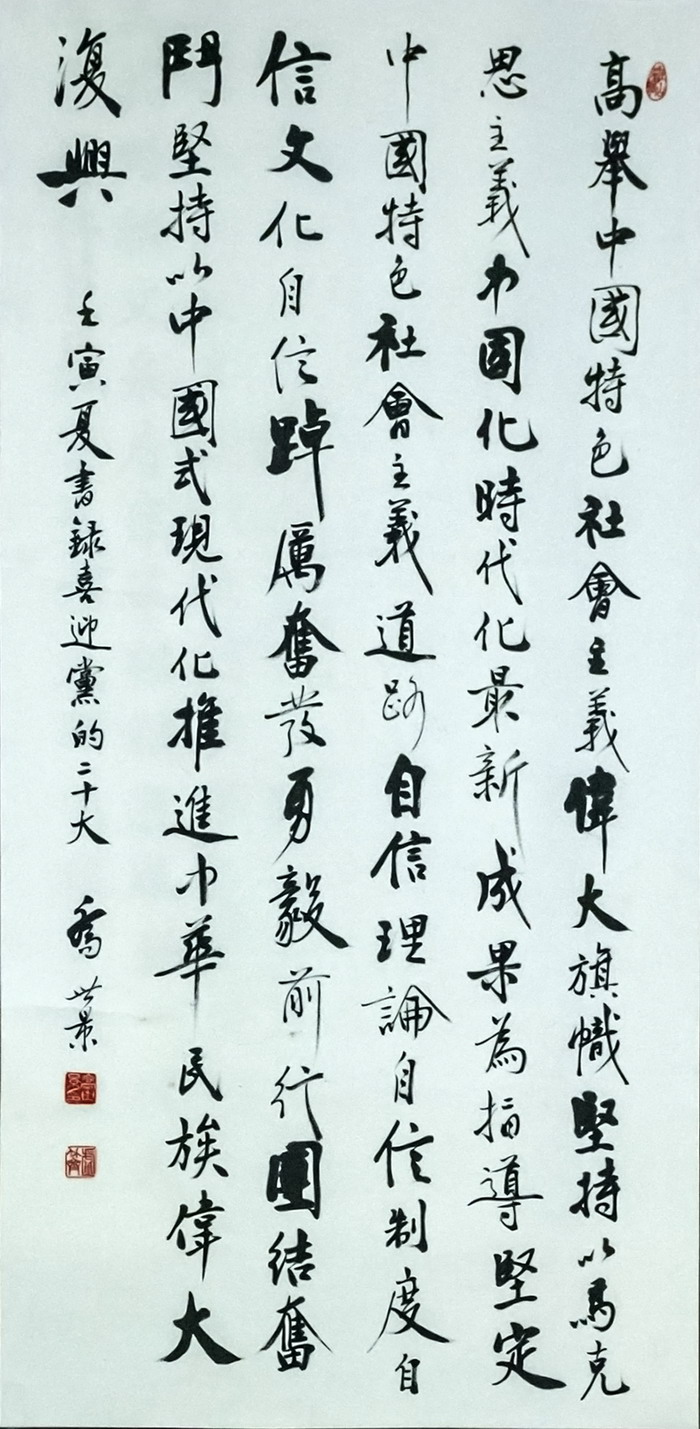 高舉中國特色社會主義偉大旗幟堅持以馬克
思主義中國化時代化最新成果為指導堅定
中國特色社會主義道路自信理論自信制度自
信文化自信踔厲奮發勇毅前行團結奮
鬥堅持以中國式現代化推進中華民族偉大
復興
壬寅夏書錄喜迎黨的二十大 喬世景